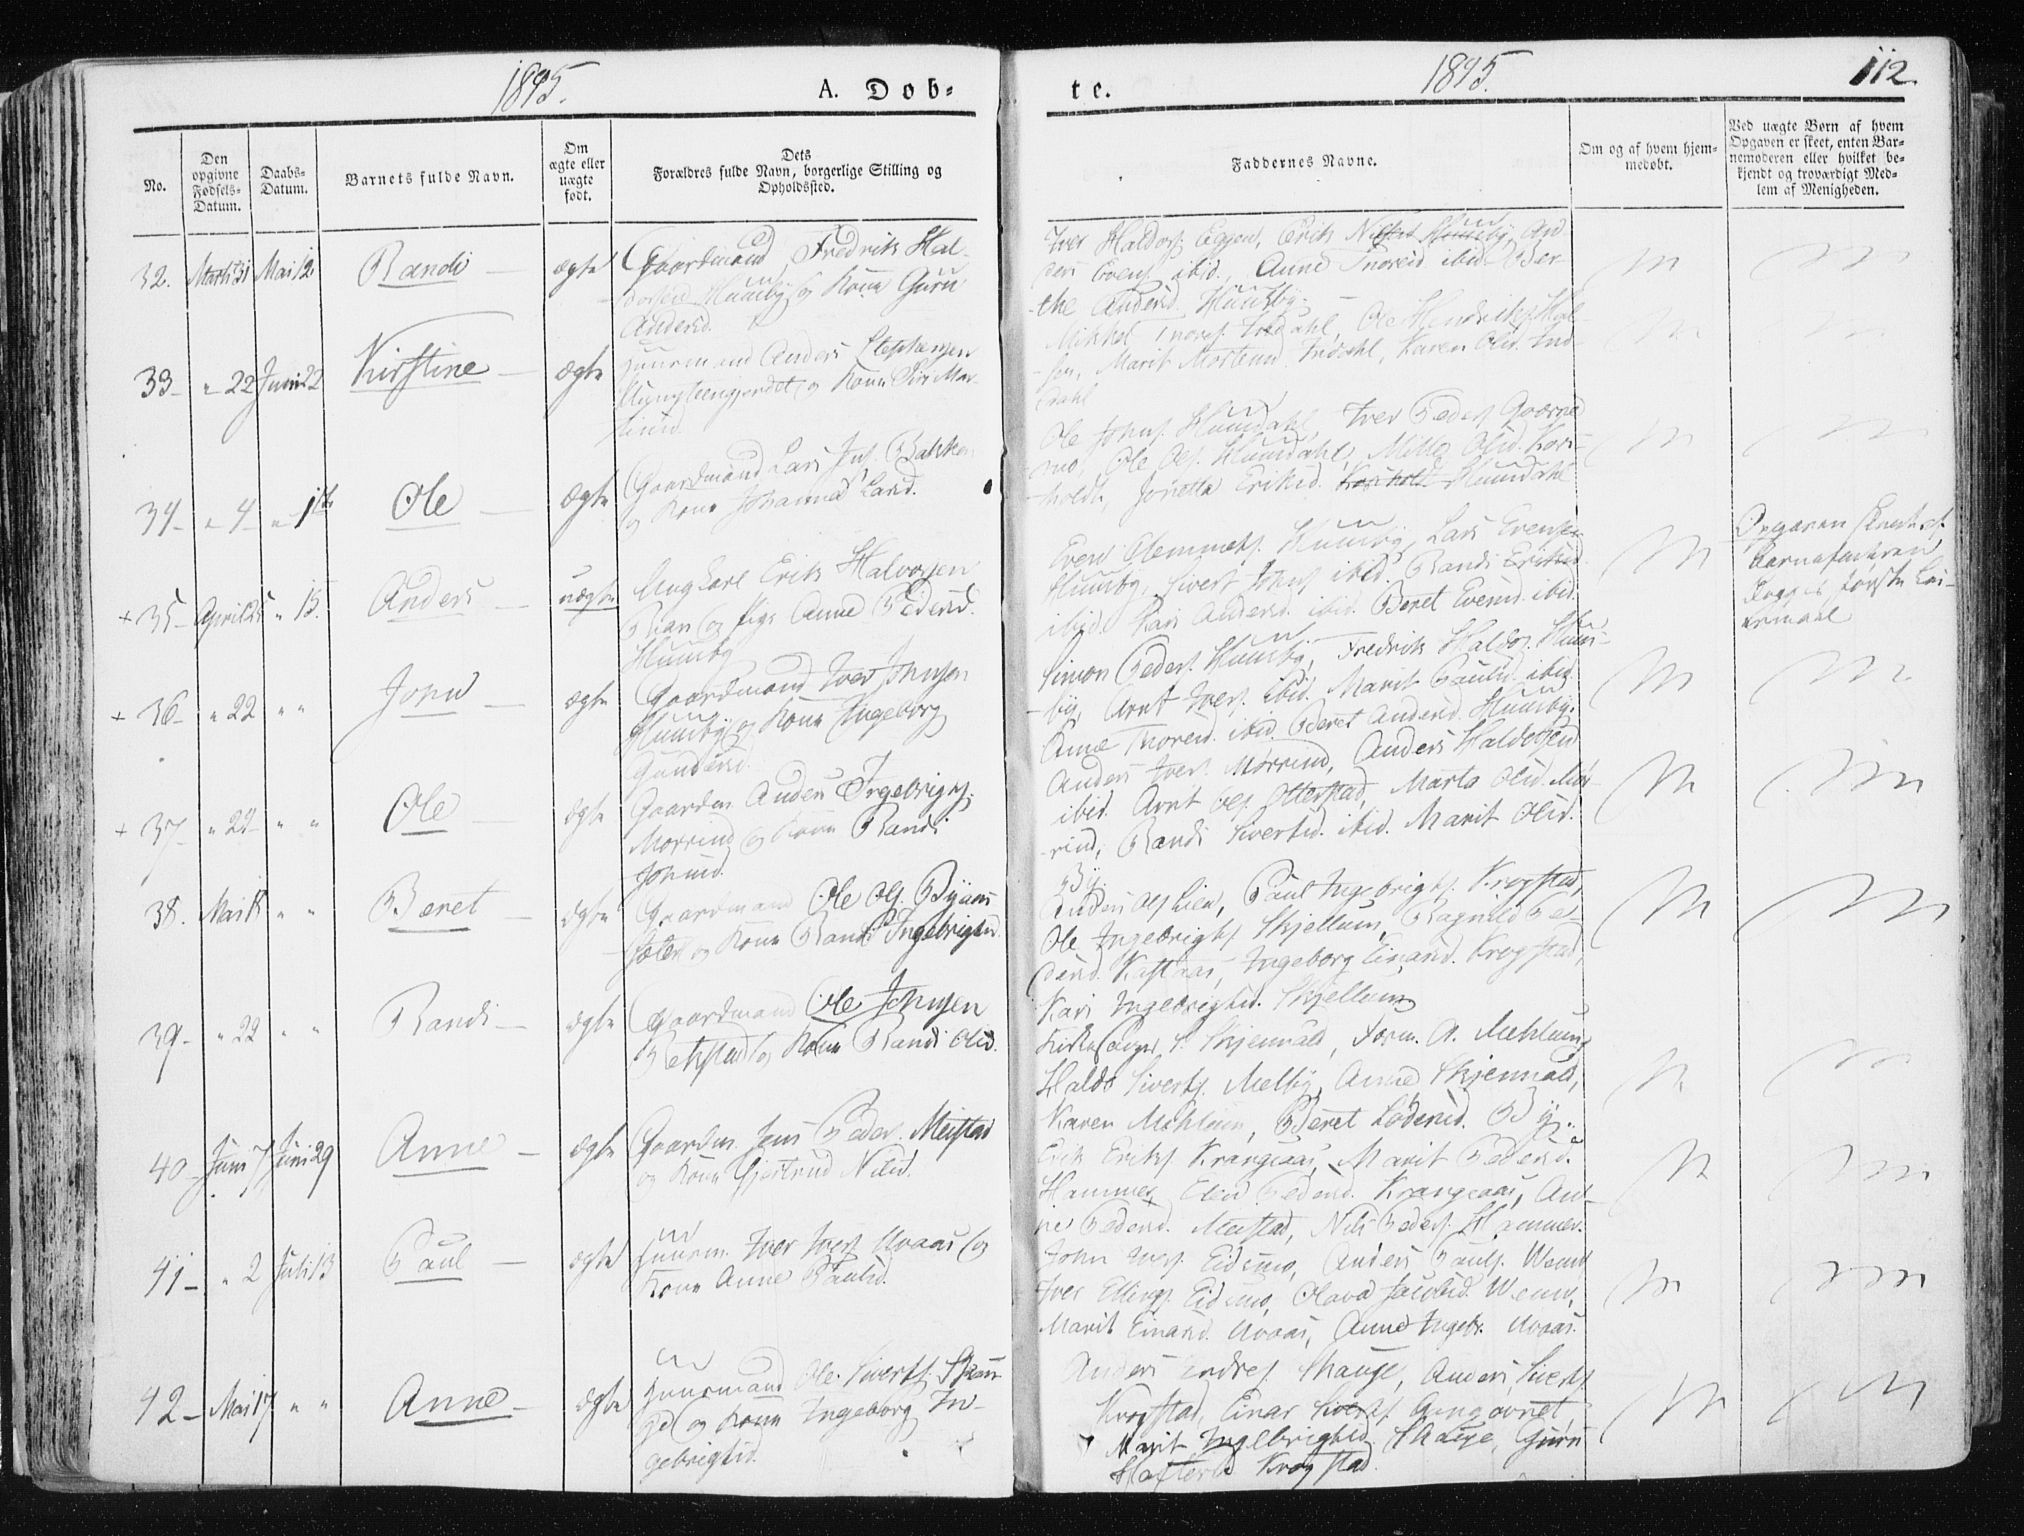 1845.
A. Döb-
te.
1845.
112
No.
Den opgivne Fødsels-Datum.
Daabs-Datum.
Barnets fulde Navn.
Om ægte eller uægte født.
Dets Forældres fulde Navn, borgerlige Stilling og Opholdssted.
Faddernes Navne.
Om og af hvem hjemmedøbt.
Ved uægte Børn af hvem Opgaven er skeet, enten Barnemoderen eller hvilket bekjendt og troværdigt Medlem af Menigheden.
32. Marts 31 Mai 12 Randi ægte Gaardmand Fredrik Hal-
dorsen Huusby og Kone Guru
Andersd.
Iver Haldors. Eggen, Erik Huusby, An-
ders Evens. ibid., Anne Thoresd. ibid. Ber-
the Andersd. Huusby.
33 " 22 Juni 22 Kirstine ægte Huusmand Anders Stephensen
og Kone Siri Mor-
tensd.
Mikkel Thores. Indahl, Ole Hendriks.
Marit Mortensd. Indahl, Karen Olsd. In-
dahl
34 " 4 " 1ste Ole ægte Gaardmand Lars Joh. Bakken
og Kone Johanna Larsd.
Ole Johns. Huundahl, Iver Peders. Qværne
mo, Ole Ols. Huundahl, Mille Olsd. Kor-
holdt, Jonetta Eriksd. Huundahl
+ 35 April 25 " 15. Anders uægte Ungkarl Erik Halvorsen
og Pige Anne Pedersd.
Huusby
Even Clemmets. Huusby, Lars Evensen
Huusby, Sivert Johns. ibid. Randi Eriksd.
ibid. Kari Andersd. ibid. Beret Evensd. ibid.
Opgaven skeet af
Barnefaderen
Begges første Lei-
ermaal
+ 36 " 22 " " John ægte Gaardmand Iver Johnsen
Huusby og Kone Ingeborg
Gundersd.
Simon Peders. Huusby, Fredrik Haldors. Huus-
by, Arnt Ivers. ibid. Marit Paulsd. ibid.
Anne Thoresd. ibid. Beret Andersd. Huusby.
+ 37 " 22 " " Ole ægte Gaardm. Anders Ingebrigts.
Mørrind og Kone Randi
Johnsd.
Anders Ivers. Mørrind, Anders Haldorsen
ibid. Arnt Ols. Otterstad, Marta Olsd. Mør-
rind, Randi Sivertsd. ibid. Marit Olsd.
By.
38. Mai 18 " " Beret ægte Gaardmand Ole Ols. Byaas-
sæter og Kone Randi Ingebrigtsd.
Anders Ols. Lien, Paul Ingebrigts. Krogstad,
Ole Ingebrigts. Skjellum, Ragnild Pe-
dersd. Kastaas, Ingeborg Einarsd. Krogstad,
Kari Ingebrigtsd. Skjellum
39 " 22 " " Randi ægte Gaardmand Ole Johnsen
Rekstad og Kone Randi Olsd.
Kirkesanger S. Skjenald, Form. A. Mehlum,
Haldo Siverts. Melby, Anne Skjenald,
Karen Mehlum, Beret Lodersd. By.
40 Juni 7 Juni 29 Anne ægte Gaardm. Jens Peders. Meistad
og Kone Gjertrud Nilsd.
Erik Eriks. Krangsaas, Marit Pedersd.
Hammer, Elen Pedersd. Krangsaas, An-
ne Pedersd. Meistad, Nils Peders. Hammer.
41 " 2 Juli 13 Paul ægte Huusm. Iver Ivers. Uvaas og
Kone Anne Paulsd.
John Ivers. Eidsmo, Anders Pauls. Wenn
Iver Ellings. Eidsmo, Olava Jacobsd. Wenn,
Marit Einarsd. Uvaas, Anne Ingebr. Uvaas.
42 Mai 17 " " Anne ægte Huusmand Ole Siverts. Skau-
ge og Kone Ingeborg In-
gebrigtsd.
Anders Endres. Skauge, Anders Siverts.
Krogstad, Einar Siverts.
Marit Ingebrigtsd. Skauge, Guru
Haftersd. Krogstad.